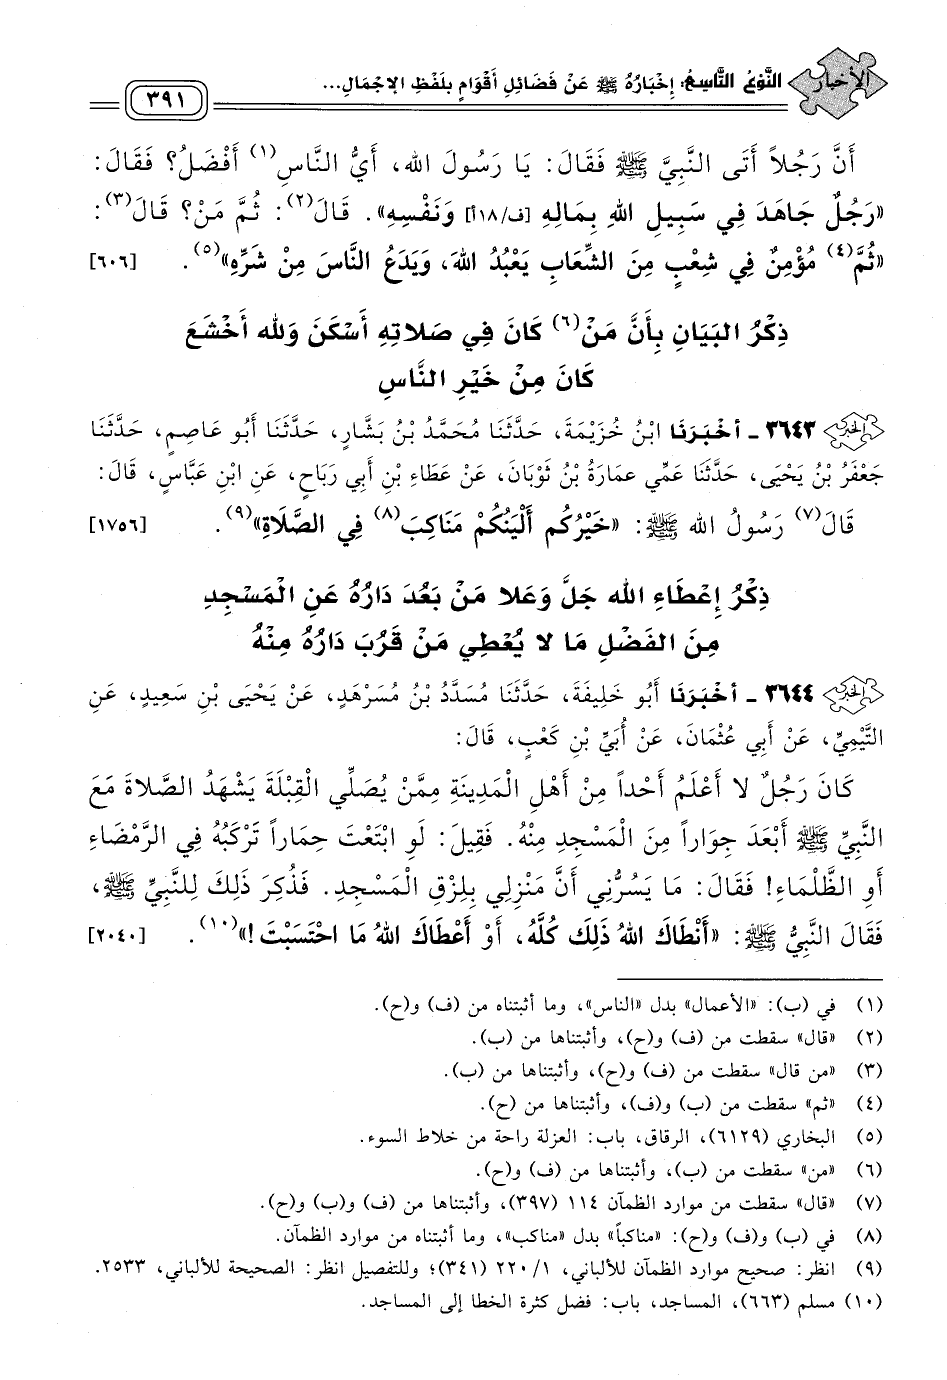 الأخبار النَّوْعُ التَّاسِعُ: إِخْبَارُهُ ﷺ عَنْ فَضَائِلِ أَقْوَامٍ بِلَفْظِ الإجْمَالِ...
٣٩١
أَنَّ رَجُلاً أَتَى النَّبِيَّ ﷺ فَقَالَ: يَا رَسُولَ اللهِ، أَيُّ النَّاسِ(١) أَفْضَلُ؟ فَقَالَ:
«رَجُلٌ جَاهَدَ فِي سَبِيلِ اللهِ بِمَالِهِ [ف/١٨أ] وَنَفْسِهِ». قَالَ(٢): ثُمَّ مَنْ؟ قَالَ(٣):
«ثُمَّ(٤) مُؤْمِنٌ فِي شِعْبٍ مِنَ الشِّعَابِ يَعْبُدُ اللهَ، وَيَدَعُ النَّاسَ مِنْ شَرِّهِ»(٥). [٦٠٦]
ذِكْرُ البَيَانِ بِأَنَّ مَنْ(٦) كَانَ فِي صَلاتِهِ أَسْكَنَ وَلله أَخْشَعَ
كَانَ مِنْ خَيْرِ النَّاسِ
٣٦٤٣ ـ أخْبَرَنَا ابْنُ خُزَيْمَةَ، حَدَّثَنَا مُحَمَّدُ بْنُ بَشَّارٍ، حَدَّثَنَا أَبُو عَاصِمٍ، حَدَّثَنَا
جَعْفَرُ بْنُ يَحْيَى، حَدَّثَنَا عَمِّي عمَارَةُ بْنُ ثَوْبَانَ، عَنْ عَطَاءِ بْنِ أَبِي رَبَاحٍ، عَنِ ابْنِ عَبَّاسٍ، قَالَ:
قَالَ(٧) رَسُولُ الله ﷺ: «خَيْرُكُم أَلْيَنُكُمْ مَنَاكِبَ(٨) فِي الصَّلَاةِ»(٩). [١٧٥٦]
ذِكْرُ إِعْطَاءِ الله جَلَّ وَعَلا مَنْ بَعُدَ دَارُهُ عَنِ الْمَسْجِدِ
مِنَ الفَضْلِ مَا لا يُعْطِي مَنْ قَرُبَ دَارُهُ مِنْهُ
٣٦٤٤ ـ أخْبَرَنَا أَبُو خَلِيفَةَ، حَدَّثَنَا مُسَدَّدُ بْنُ مُسَرْهَدٍ، عَنْ يَحْيَى بْنِ سَعِيدٍ، عَنِ
التَّيْمِيِّ، عَنْ أَبِي عُثْمَانَ، عَنْ أُبَيِّ بْنِ كَعْبٍ، قَالَ:
كَانَ رَجُلٌ لا أَعْلَمُ أَحْداً مِنْ أَهْلِ الْمَدِينَةِ مِمَّنْ يُصَلِّي الْقِبْلَةَ يَشْهَدُ الصَّلاةَ مَعَ
النَّبِيِّ ﷺ أَبْعَدَ جِوَاراً مِنَ الْمَسْجِدِ مِنْهُ. فَقِيلَ: لَوِ ابْتَعْتَ حِمَاراً تَرْكَبُهُ فِي الرَّمْضَاءِ
أَوِ الظَّلْمَاءِ! فَقَالَ: مَا يَسُرُّنِي أَنَّ مَنْزِلِي بِلِزْقِ الْمَسْجِدِ. فَذُكِرَ ذَلِكَ لِلنَّبِيِّ ﷺ،
فَقَالَ النَّبِيُّ ﷺ: «أَنْطَاكَ اللهُ ذَلِكَ كُلَّهُ، أَوْ أَعْطَاكَ اللهُ مَا احْتَسَبْتَ!»(١٠). [٢٠٤٠]
(١) في (ب): «الأعمال» بدل «الناس»، وما أثبتناه من (ف) و(ح).
(٢) «قال» سقطت من (ف) و(ح)، وأثبتناها من (ب).
(٣) «من قال» سقطت من (ف) و(ح)، وأثبتناها من (ب).
(٤) «ثم» سقطت من (ب) و(ف)، وأثبتناها من (ح).
(٥) البخاري (٦١٢٩)، الرقاق، باب: العزلة راحة من خلاط السوء.
(٦) «من» سقطت من (ب)، وأثبتناها من (ف) و(ح).
(٧) «قال» سقطت من موارد الظمآن ١١٤ (٣٩٧)، وأثبتناها من (ف) و(ب) و(ح).
(٨) في (ب) و(ف) و(ح): «مناكباً» بدل «مناكب»، وما أثبتناه من موارد الظمآن.
(٩) انظر: صحيح موارد الظمآن للألباني، ١/ ٢٢٠ (٣٤١)؛ وللتفصيل انظر: الصحيحة للألباني، ٢٥٣٣.
(١٠) مسلم (٦٦٣)، المساجد، باب: فضل كثرة الخطا إلى المساجد.